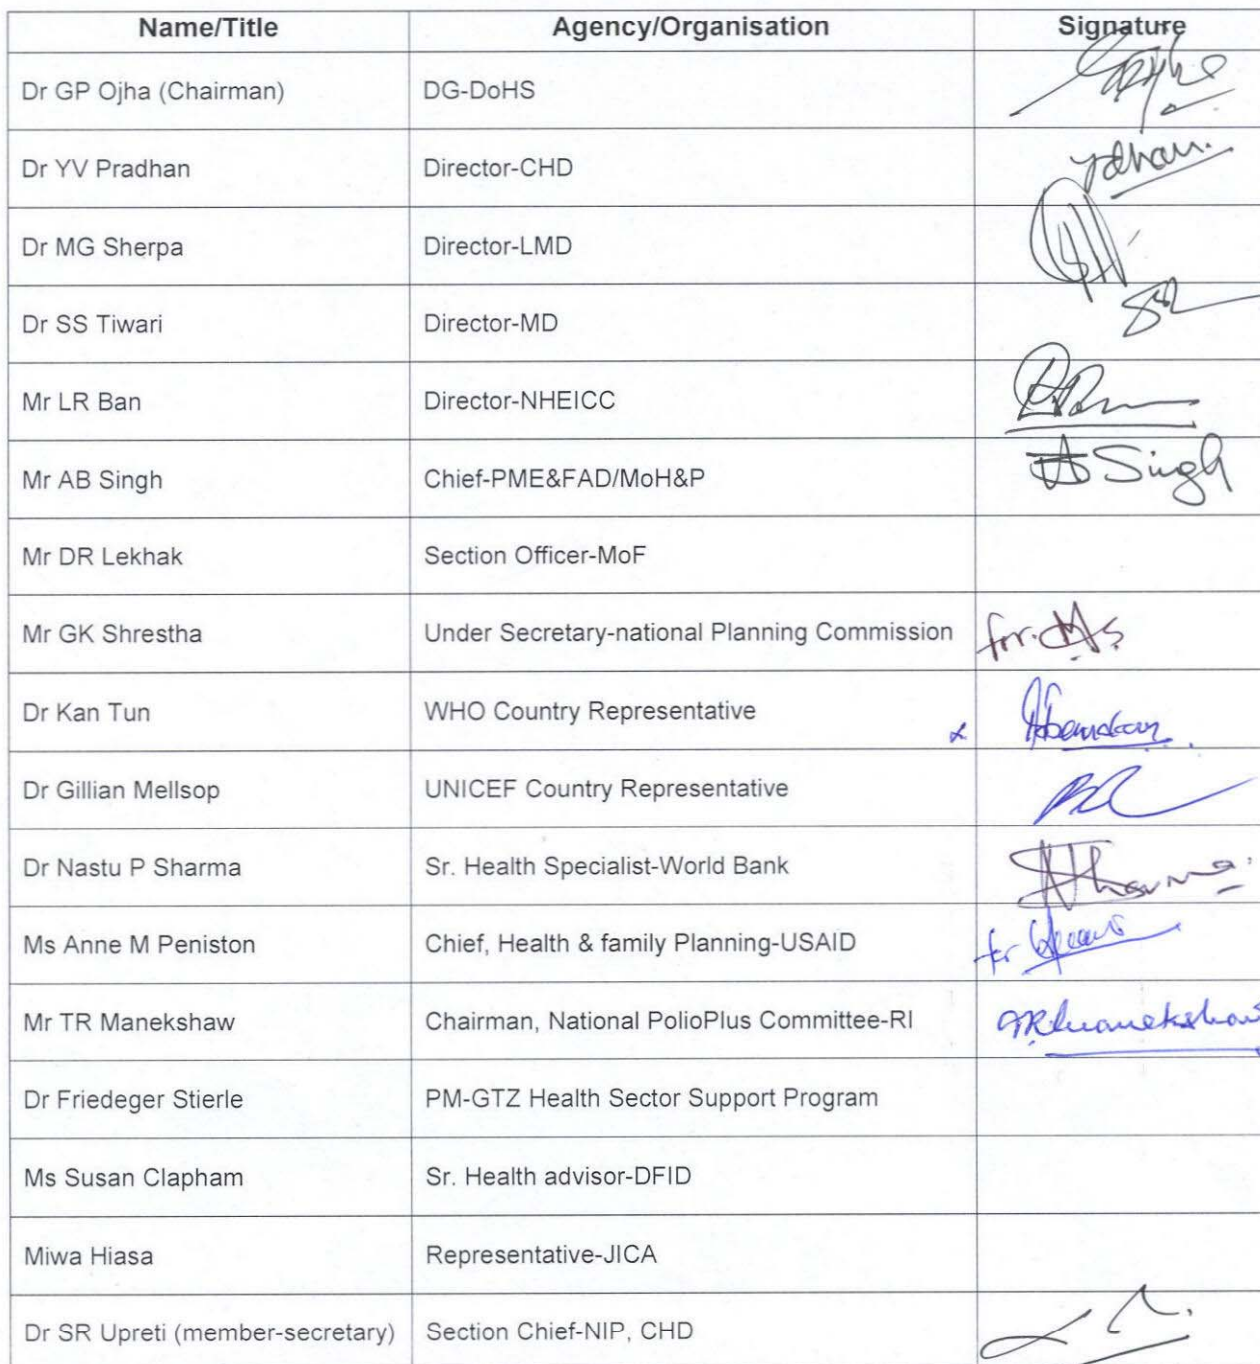 Name/Title Agency/Organisation Signature
Dr GP Ojha (Chairman) DG-DoHS
Dr YV Pradhan Director-CHD
Dr MG Sherpa Director-LMD
Dr SS Tiwari Director-MD
Mr LR Ban Director-NHEICC
Mr AB Singh Chief-PME&FAD/MoH&P Singh
Mr DR Lekhak Section Officer-MoF
Mr GK Shrestha Under Secretary-national Planning Commission for
Dr Kan Tun WHO Country Representative
Dr Gillian Mellsop UNICEF Country Representative
Dr Nastu P Sharma Sr. Health Specialist-World Bank
Ms Anne M Peniston Chief, Health & family Planning-USAID for
Mr TR Manekshaw Chairman, National PolioPlus Committee-RI TR Manekshaw
Dr Friedeger Stierle PM-GTZ Health Sector Support Program
Ms Susan Clapham Sr. Health advisor-DFID
Miwa Hiasa Representative-JICA
Dr SR Upreti (member-secretary) Section Chief-NIP, CHD